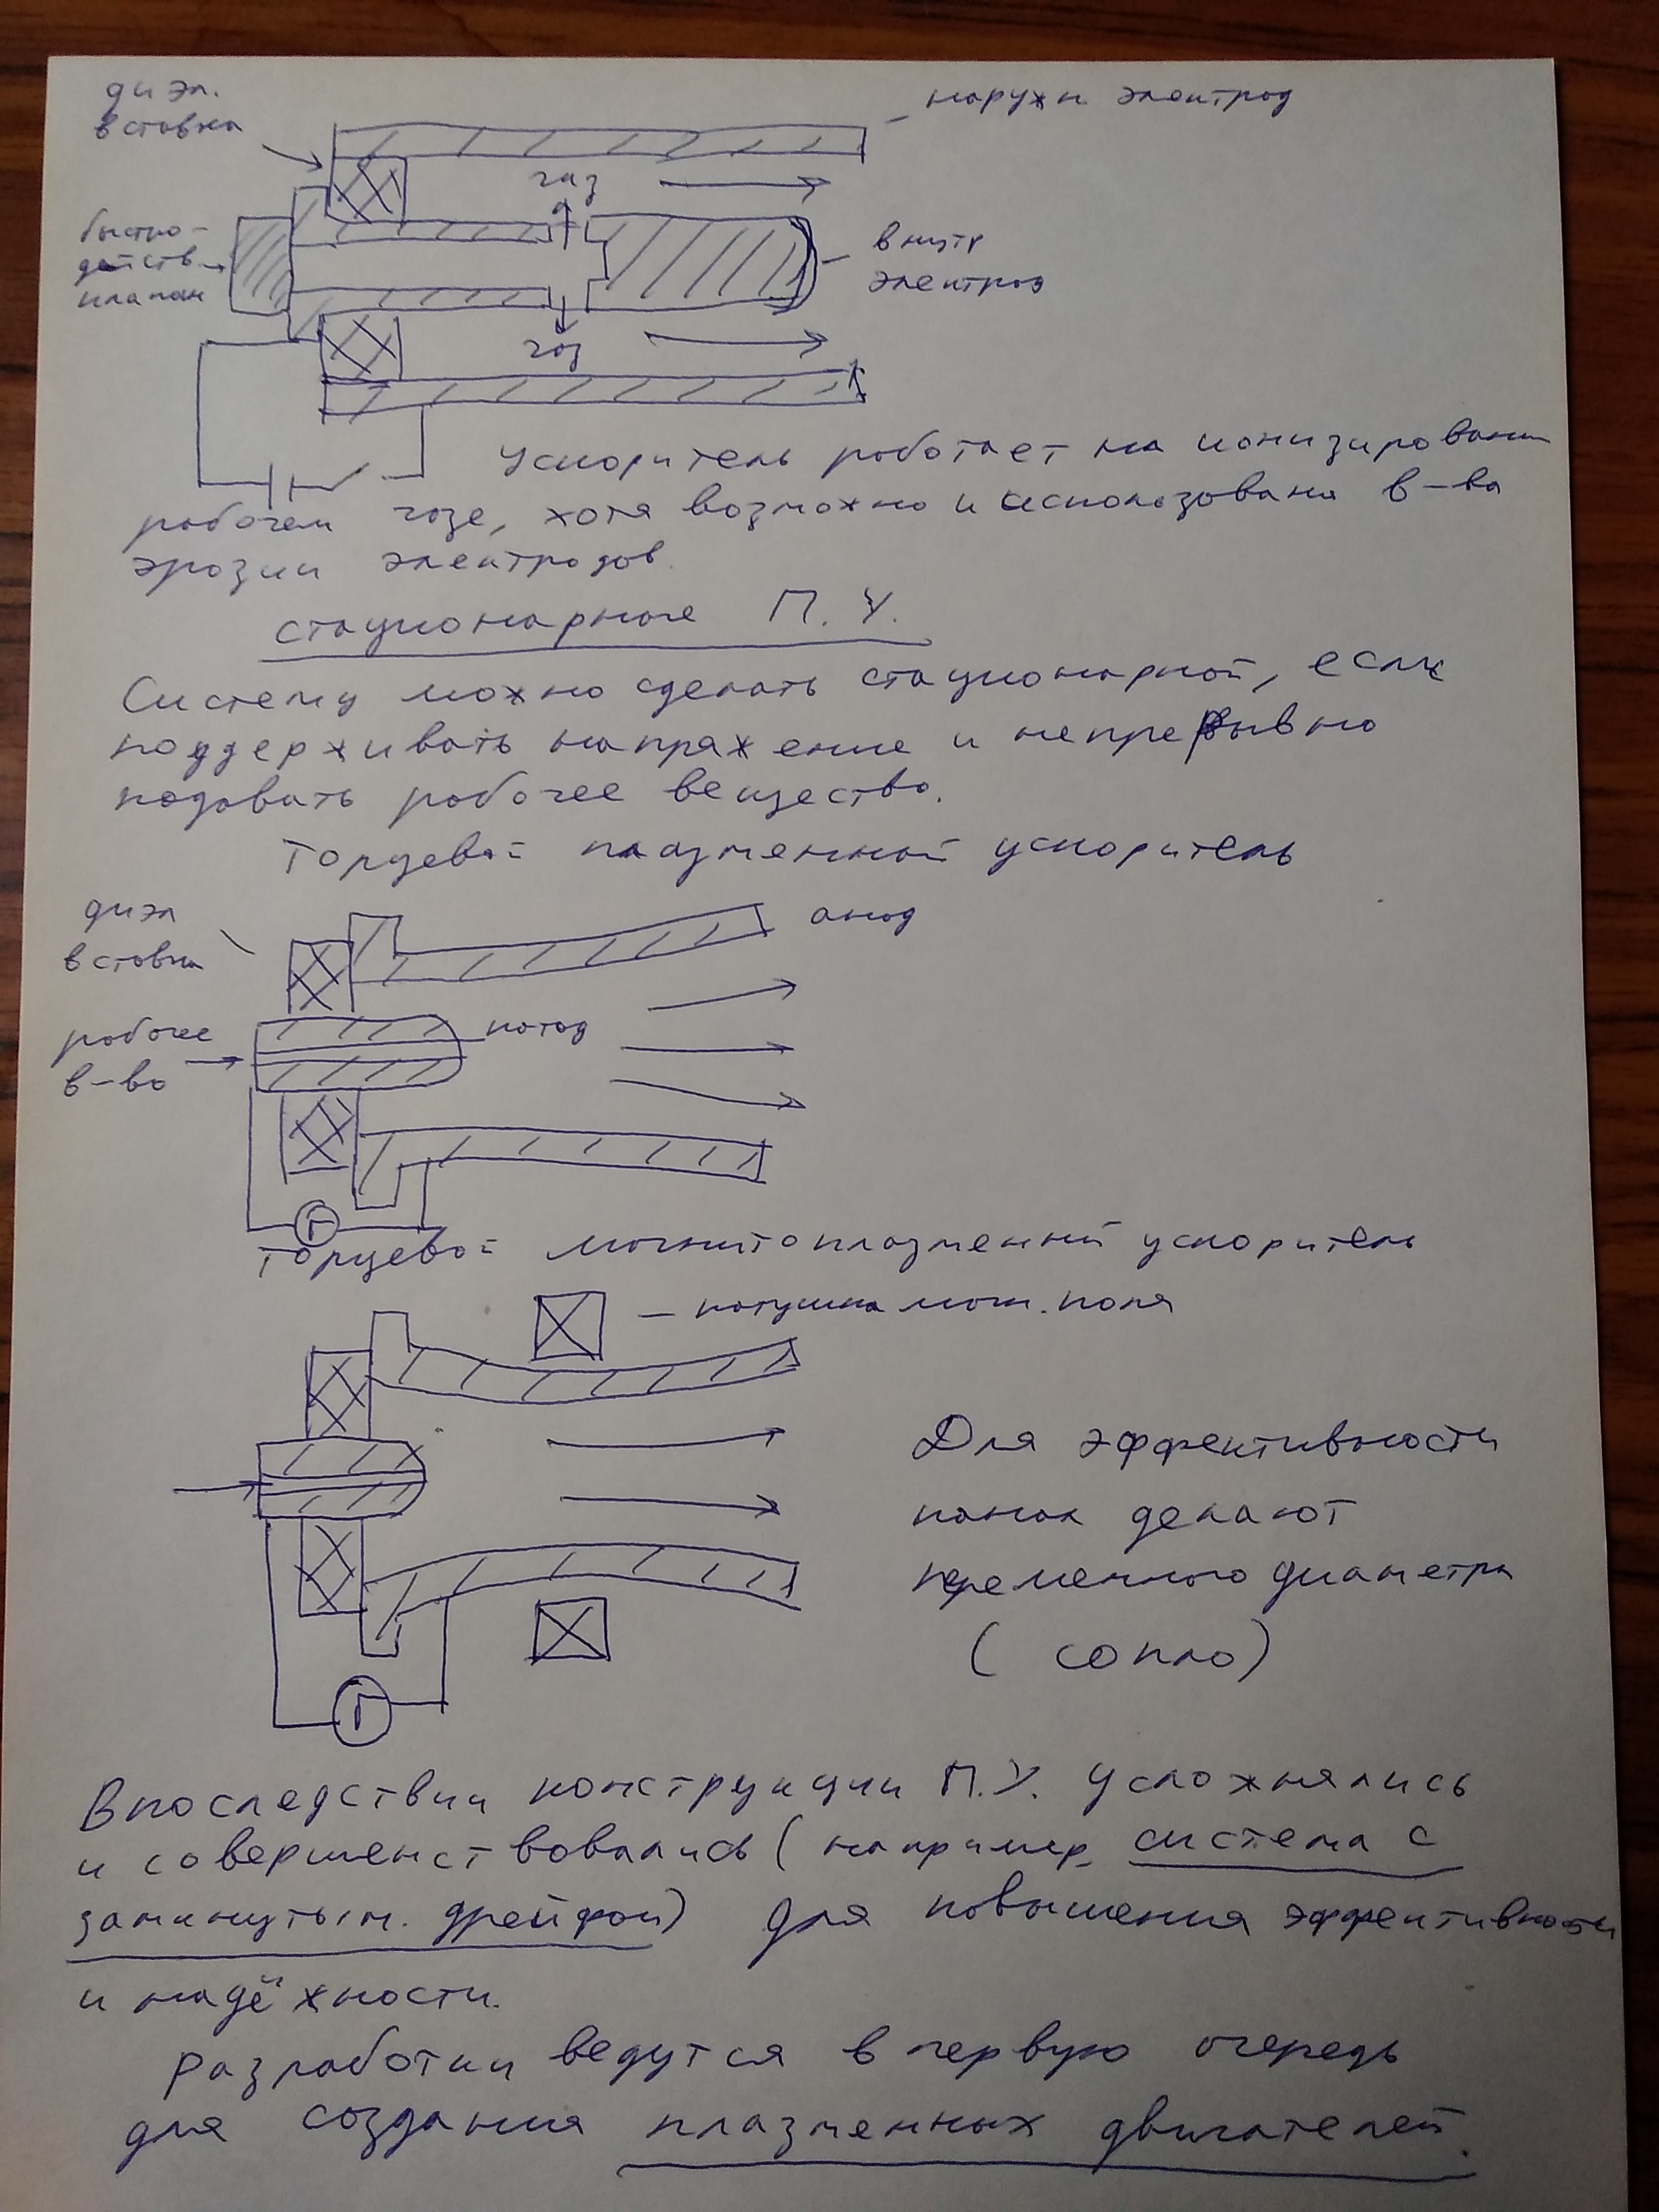 диэл.
вставка
наружн. электрод
газ
быстро-
действ.
клапан
внутр
электрод
газ
Ускоритель работает на ионизирован
рабочем газе, хотя возможно и использование в-ва
эрозии электродов.
стационарные П.У.
Систему можно сделать стационарной, если
поддерживать напряжение и непрерывно
подавать рабочее вещество.
Торцевой плазменный ускоритель
диэл
вставка
анод
рабочее
в-во
катод
Г
Торцевой магнитоплазменный ускоритель
– катушка магн. поля
Для эффективности
канал делают
переменного диаметра
(сопло)
Г
Впоследствии конструкции П.У. усложнялись
и совершенствовались (например, система с
замкнутым. дрейфом) для повышения эффективности
и надёжности.
Разработки ведутся в первую очередь
для создания плазменных двигателей.